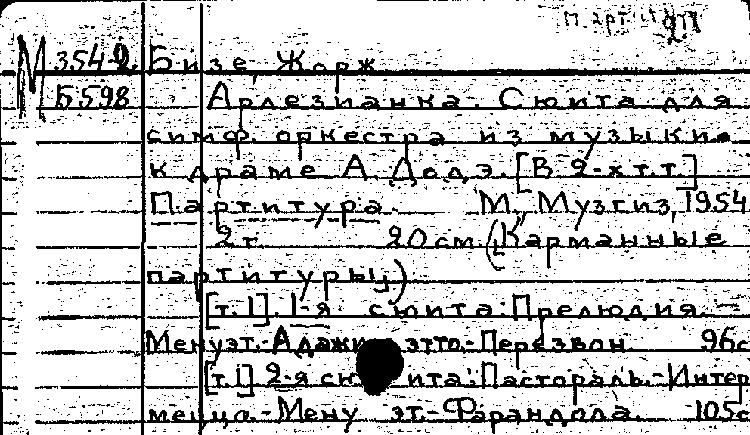 М 354-2. Бизе, Жорж
Б598 Арлезианка. Сюита для
симф. оркестра из музыки
к драме А. Додэ. [В 2-х т.т.]
Партитура. М., Музгиз, 1954
2т 20 см. (Карманные
партитуры)
[т. 1]. 1-я сюита: Прелюдия. —
Менуэт.-Адажиэтто.-Перезвон. 96с
2-я сюита: Пастораль.-Интер
мецца.-Менуэт.-Фарандола. 105с